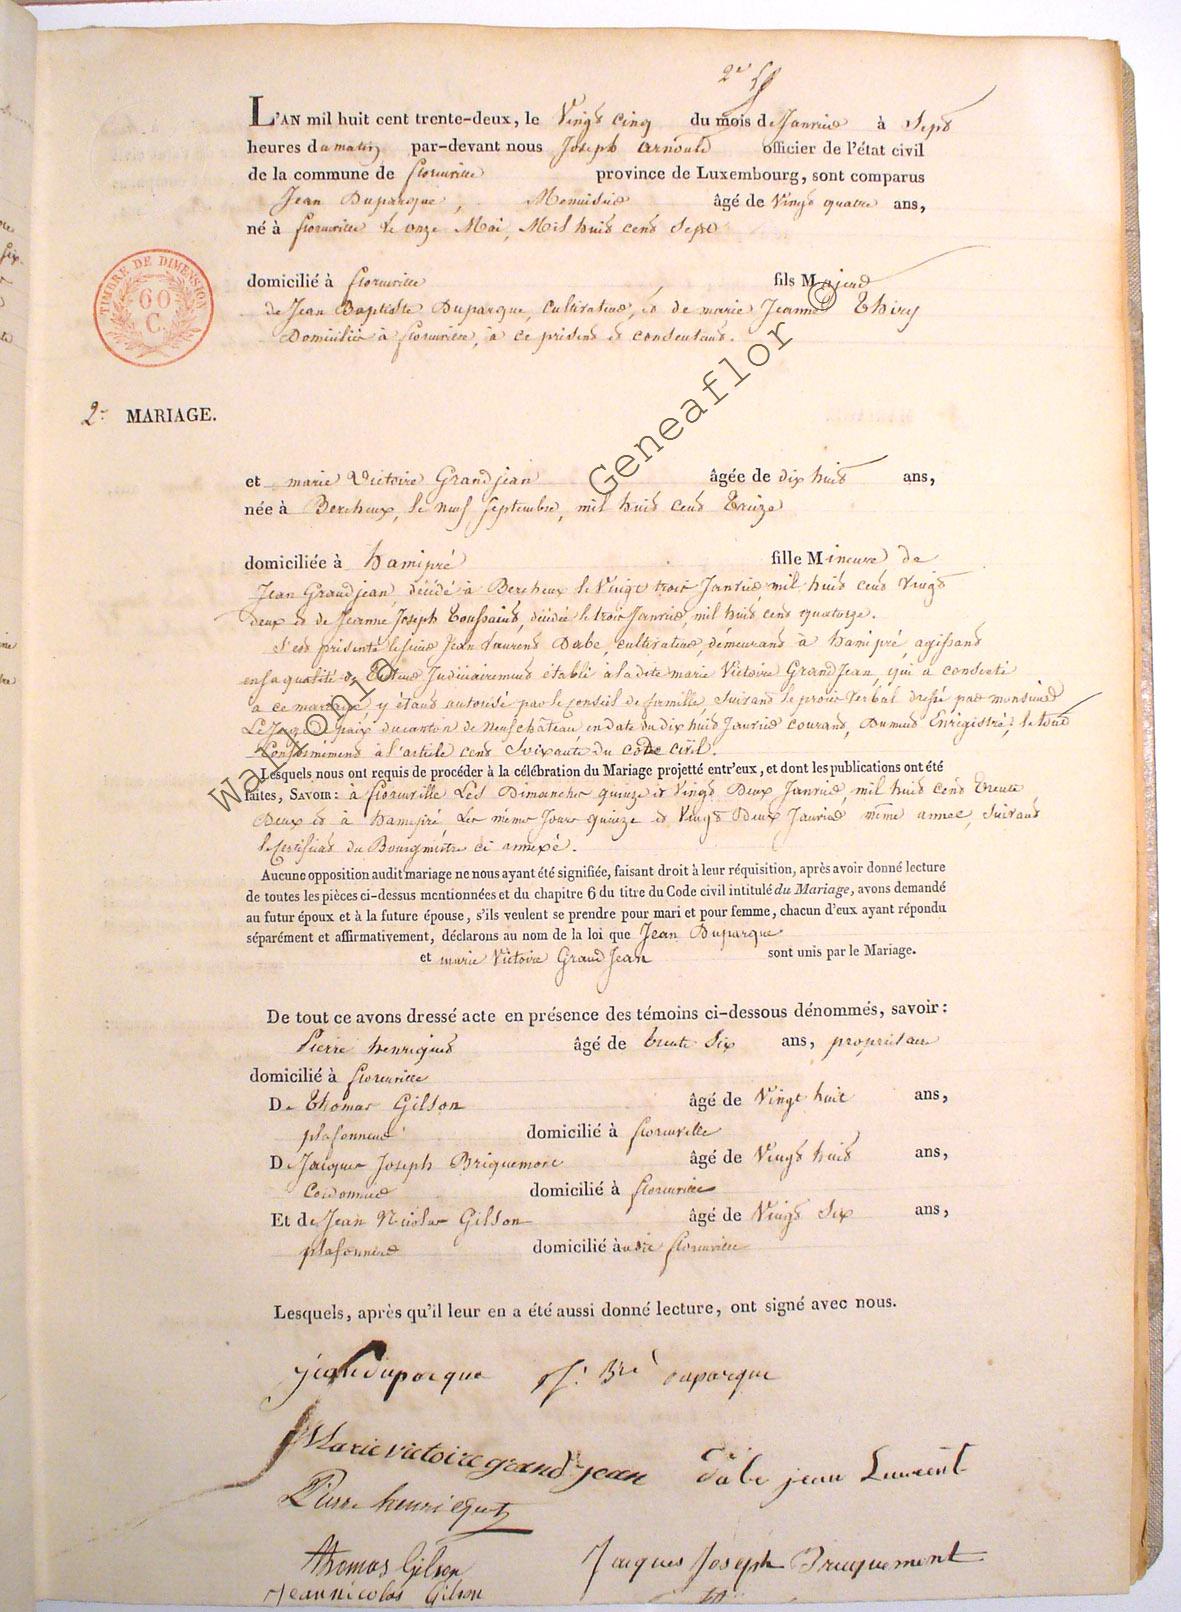 2e
L'AN mil huit cent trente-deux, le Vingt cinq du mois de Janvier à Sept
heures du matin par-devant nous Joseph Arnould officier de l'état civil
de la commune de florenville province de Luxembourg, sont comparus
Jean Duparque, Menuisier âgé de Vingt quatre ans,
né à florenville le onze Mai, Mil huit cent Sept
domicilié à florenville fils Majeur
de Jean Baptiste Duparque, cultivateur, et de marie Jeanne Thiry
Domiciliés à florenville, à ce présens et consentans.
TIMBRE DE DIMENSION
60
C.
2e MARIAGE.
et marie Victoire Grandjean âgée de dix huit ans,
née à Bercheux, le neuf Septembre, mil huit cent treize
domiciliée à hamipré fille Mineure de
Jean Grandjean, décédé à Bercheux le Vingt trois Janvier mil huit cent vingt
deux et de Jeanne Joseph Toussaint, décédée le trois Janvier, mil huit cent quatorze.
S'est présenté le sieur Jean Laurent Dabe, cultivateur demeurant à hamipré, agissant
en sa qualité de Tuteur Judiciairement établi à la dite marie Victoire GrandJean, qui a consenti
à ce mariage y étant autorisé par le conseil de famille, suivant le procès verbal dressé par monsieur
Le Juge de paix du canton de Neufchâteau, en date du dix huit Janvier courant, Dument Enrégistré; le tout
Conformément à l'article cent Soixante du code civil.
Lesquels nous ont requis de procéder à la célébration du Mariage projetté entr'eux, et dont les publications ont été
faites, SAVOIR: à florenville Les Dimanches quinze et vingt Deux Janvier, mil huit cent Trente
Deux et à hamipré Les mêmes Jours quinze et Vingt Deux Janvier même année, suivant
le Certificat du Bourgmestre ci annexé.
Aucune opposition audit mariage ne nous ayant été signifiée, faisant droit à leur réquisition, après avoir donné lecture
de toutes les pièces ci-dessus mentionnées et du chapitre 6 du titre du Code civil intitulé du Mariage, avons demandé
au futur époux et à la future épouse, s'ils veulent se prendre pour mari et pour femme, chacun d'eux ayant répondu
séparément et affirmativement, déclarons au nom de la loi que Jean Duparque
et marie Victoire GrandJean sont unis par le Mariage.
De tout ce avons dressé acte en présence des témoins ci-dessous dénommés, savoir:
Pierre henriquet âgé de trente Six ans, propriétaire
domicilié à florenville
De Thomas Gilson âgé de Vingt huit ans,
plafonneur domicilié à florenville
De Jacques Joseph Briquemont âgé de Vingt huit ans,
Cordonnier domicilié à florenville
Et de Jean Nicolas Gilson âgé de Vingt Six ans,
plafonneur domicilié à florenville
Lesquels, après qu'il leur en a été aussi donné lecture, ont signé avec nous.
jean duparque duparque
Marie victoire grand-jean Dabe jean Laurent
Pierre henriquet
thomas Gilson Jacques Joseph Bricquemont
Jean nicolas Gilson
Wallonia Geneaflor ©